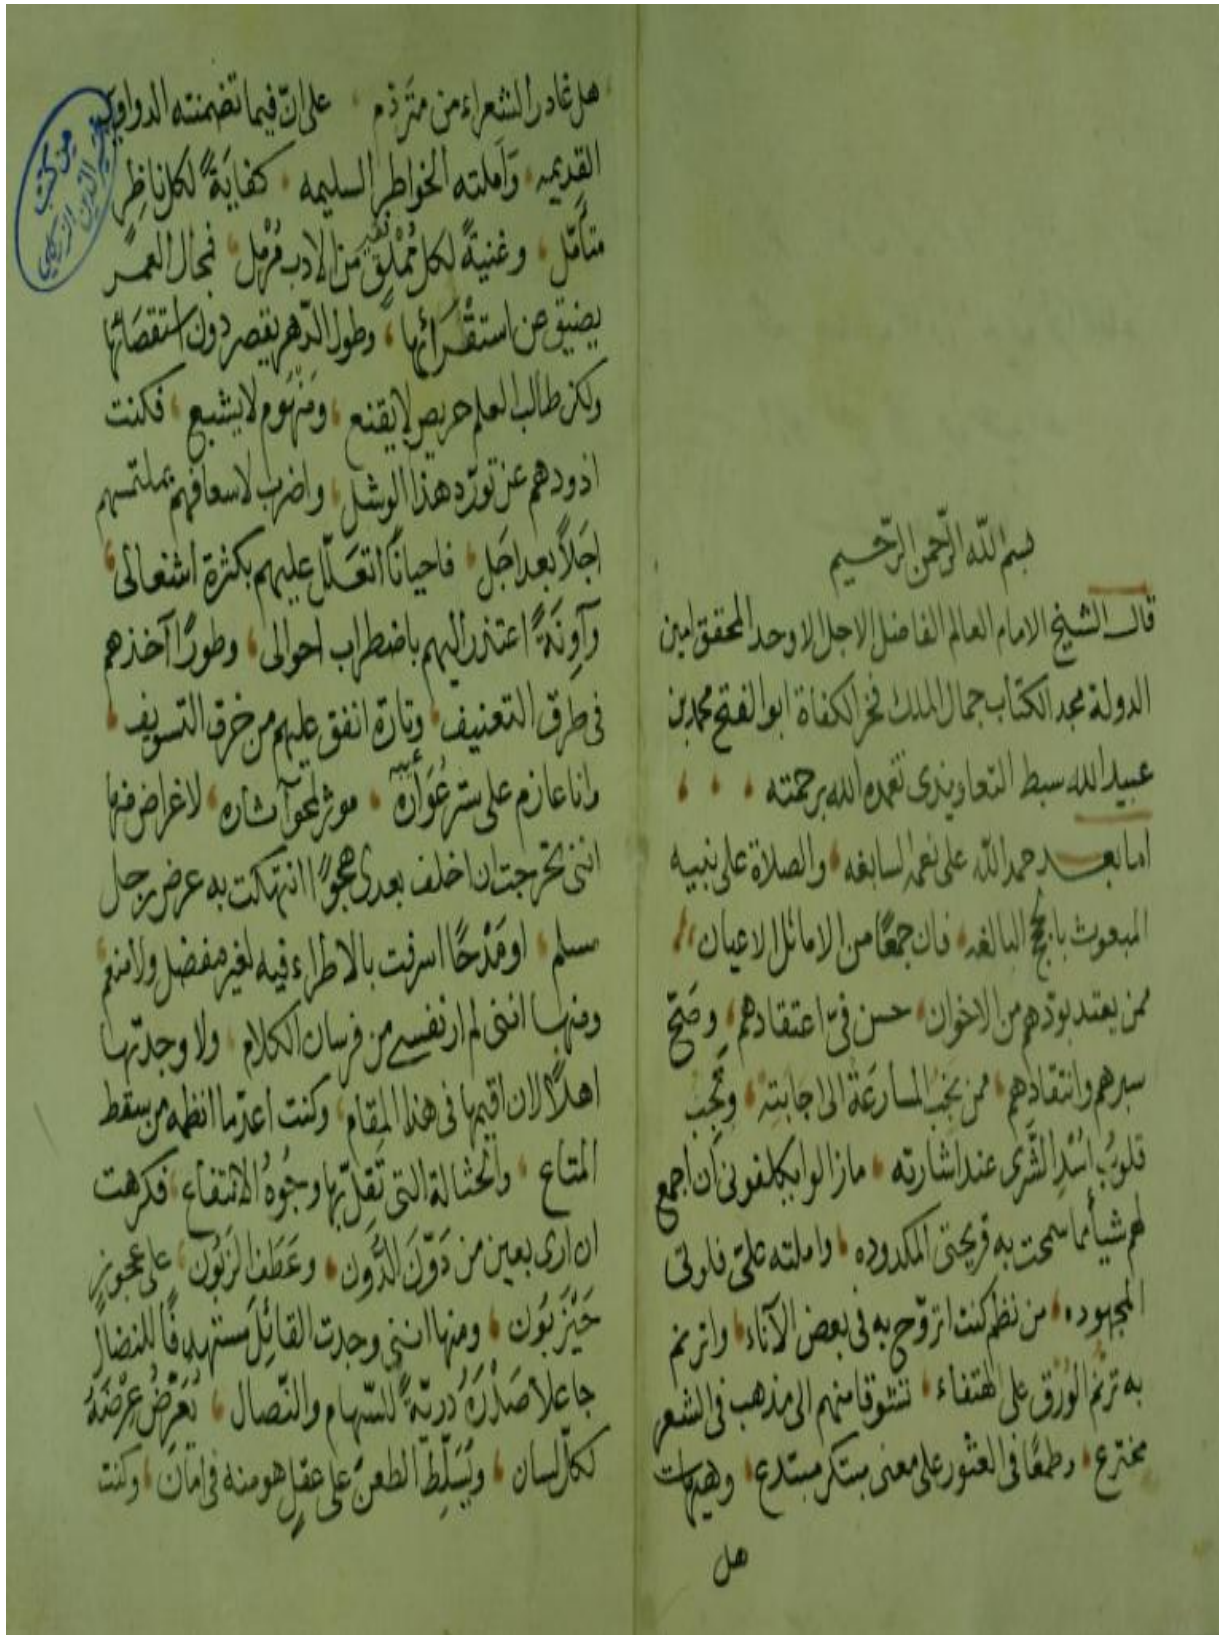 بسم الله الرحمن الرحيم
قال الشيخ الامام العالم الفاضل الاجل الاوحد المحقق امين
الدولة مجد الكتاب جمال الملك فخر الكفاة ابو الفتح محمد بن
عبيد الله سبط التعاويذى تغمده الله برحمته
اما بعد حمد الله على نعمه السابغه والصلاة على نبيه
المبعوث بالحجج البالغه فان جمعًا من الاماثل الاعيان
ممن يعتد بودهم من الاخوان حسن فىّ اعتقادهم وصَحّ
سبرهم وانتقادهم ممن يجب المسارعَة الى اجابته وتَجِبُ
قلوبُ اُسْدِ الشَّرى عند اشارته مازالوا يكلفونى ان اجمع
لهم شيأ مما سمحت به قريحتى المكدوده واملته علىّ
المجهوده من نظم كنت اتروّح به فى بعض الآناء واترنم
به ترنم الوُرْق على الهتفاء تشوقا منهم الى مذهب فى الشعر
مخترع وطمعًا فى العثور على معنى مبتكر مبتدع وهيهات
هل
هل غادر الشعراء من متردم على انّ فيما تضمنته الدواوين
القديمه وَاَملته الخواطر السليمه كفايَةً لكل ناظِر
متأمّل وغنيةً لكل مُمْلِق فقير من الادب مُرْمِل فمجال العمر
يضيق عن استقْرَائها وطول الدّهر يقصر دون استقصَائها
ولكن طالب العلم حريص لا يقنع ومَنْهوم لا يشبع فكنت
اذودهم عن تورّد هذا الوشل واضرب لاسعافهم بملتمسهم
اجَلاً بعد اجَل فاحيانًا اتعَلّل عليهم بكثرة اشغالى
وآوِنَةً اعتذر اليهم باضطراب احوالى وطورًا آخذهم
فى طرق التعنيف وتارة انفق عليهم من خرق التسويف
وانا عازم على ستر عُوَاره موثر لمحو آثاره لاغراض منها
اننى تحرّجت ان اخلف بعدى هجوًا انتهكت به عرض رجل
مسلم او مَدْحًا اسرفت بالاطراء فيه لغير مفضل ولا منعم
ومنها اننى لم ار نفسى من فرسان الكلام ولا وجدتها
اهلاً لان اقيمها فى هذا المقام وكنت اعدّ ما انظمه من سقط
المتاع والحثالة التى تَقِلّ بها وجُوهُ الانتفاع فكرهت
ان ارى بعين من دَوَّنَ الدُّون وعَطَفَ الزَبُون على عجوز
حَيْزَبُون ومنها اننى وجدت القائِلَ مستهدِفًا للنضال
جاعلا صَدْرَهُ دَريّةً للسّهام والنّصال يُعَرِّضُ عِرْضَهُ
لكلّ لسان ويُسَلِّط الطعنَ على عقلٍ هو منه فى امَان وكنت
من كتب
خير الدين الزركلي